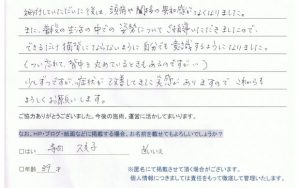 施術していただいた後は、頭痛や関節の違和感がなくなりました。
また、普段の生活の中での姿勢について、ご指導いただきましたので、
できるだけ猫背にならないように自分でも意識するようになりました。
(つい忘れて、背中を丸めているときもあるのですが…)
少しずつですが、症状が改善してきた実感がありますので、これからも
よろしくお願いします。
ご協力ありがとうございました。今後の施術、運営に活かしてまいります。
なお、HP・ブログ・紙面などに掲載する場合、お名前を載せてもよろしいでしょうか?
□はい
□いいえ
□年齢 39 才
※匿名にて掲載させて頂く場合がございます。
個人情報につきましては責任をもって徹底して管理いたします。